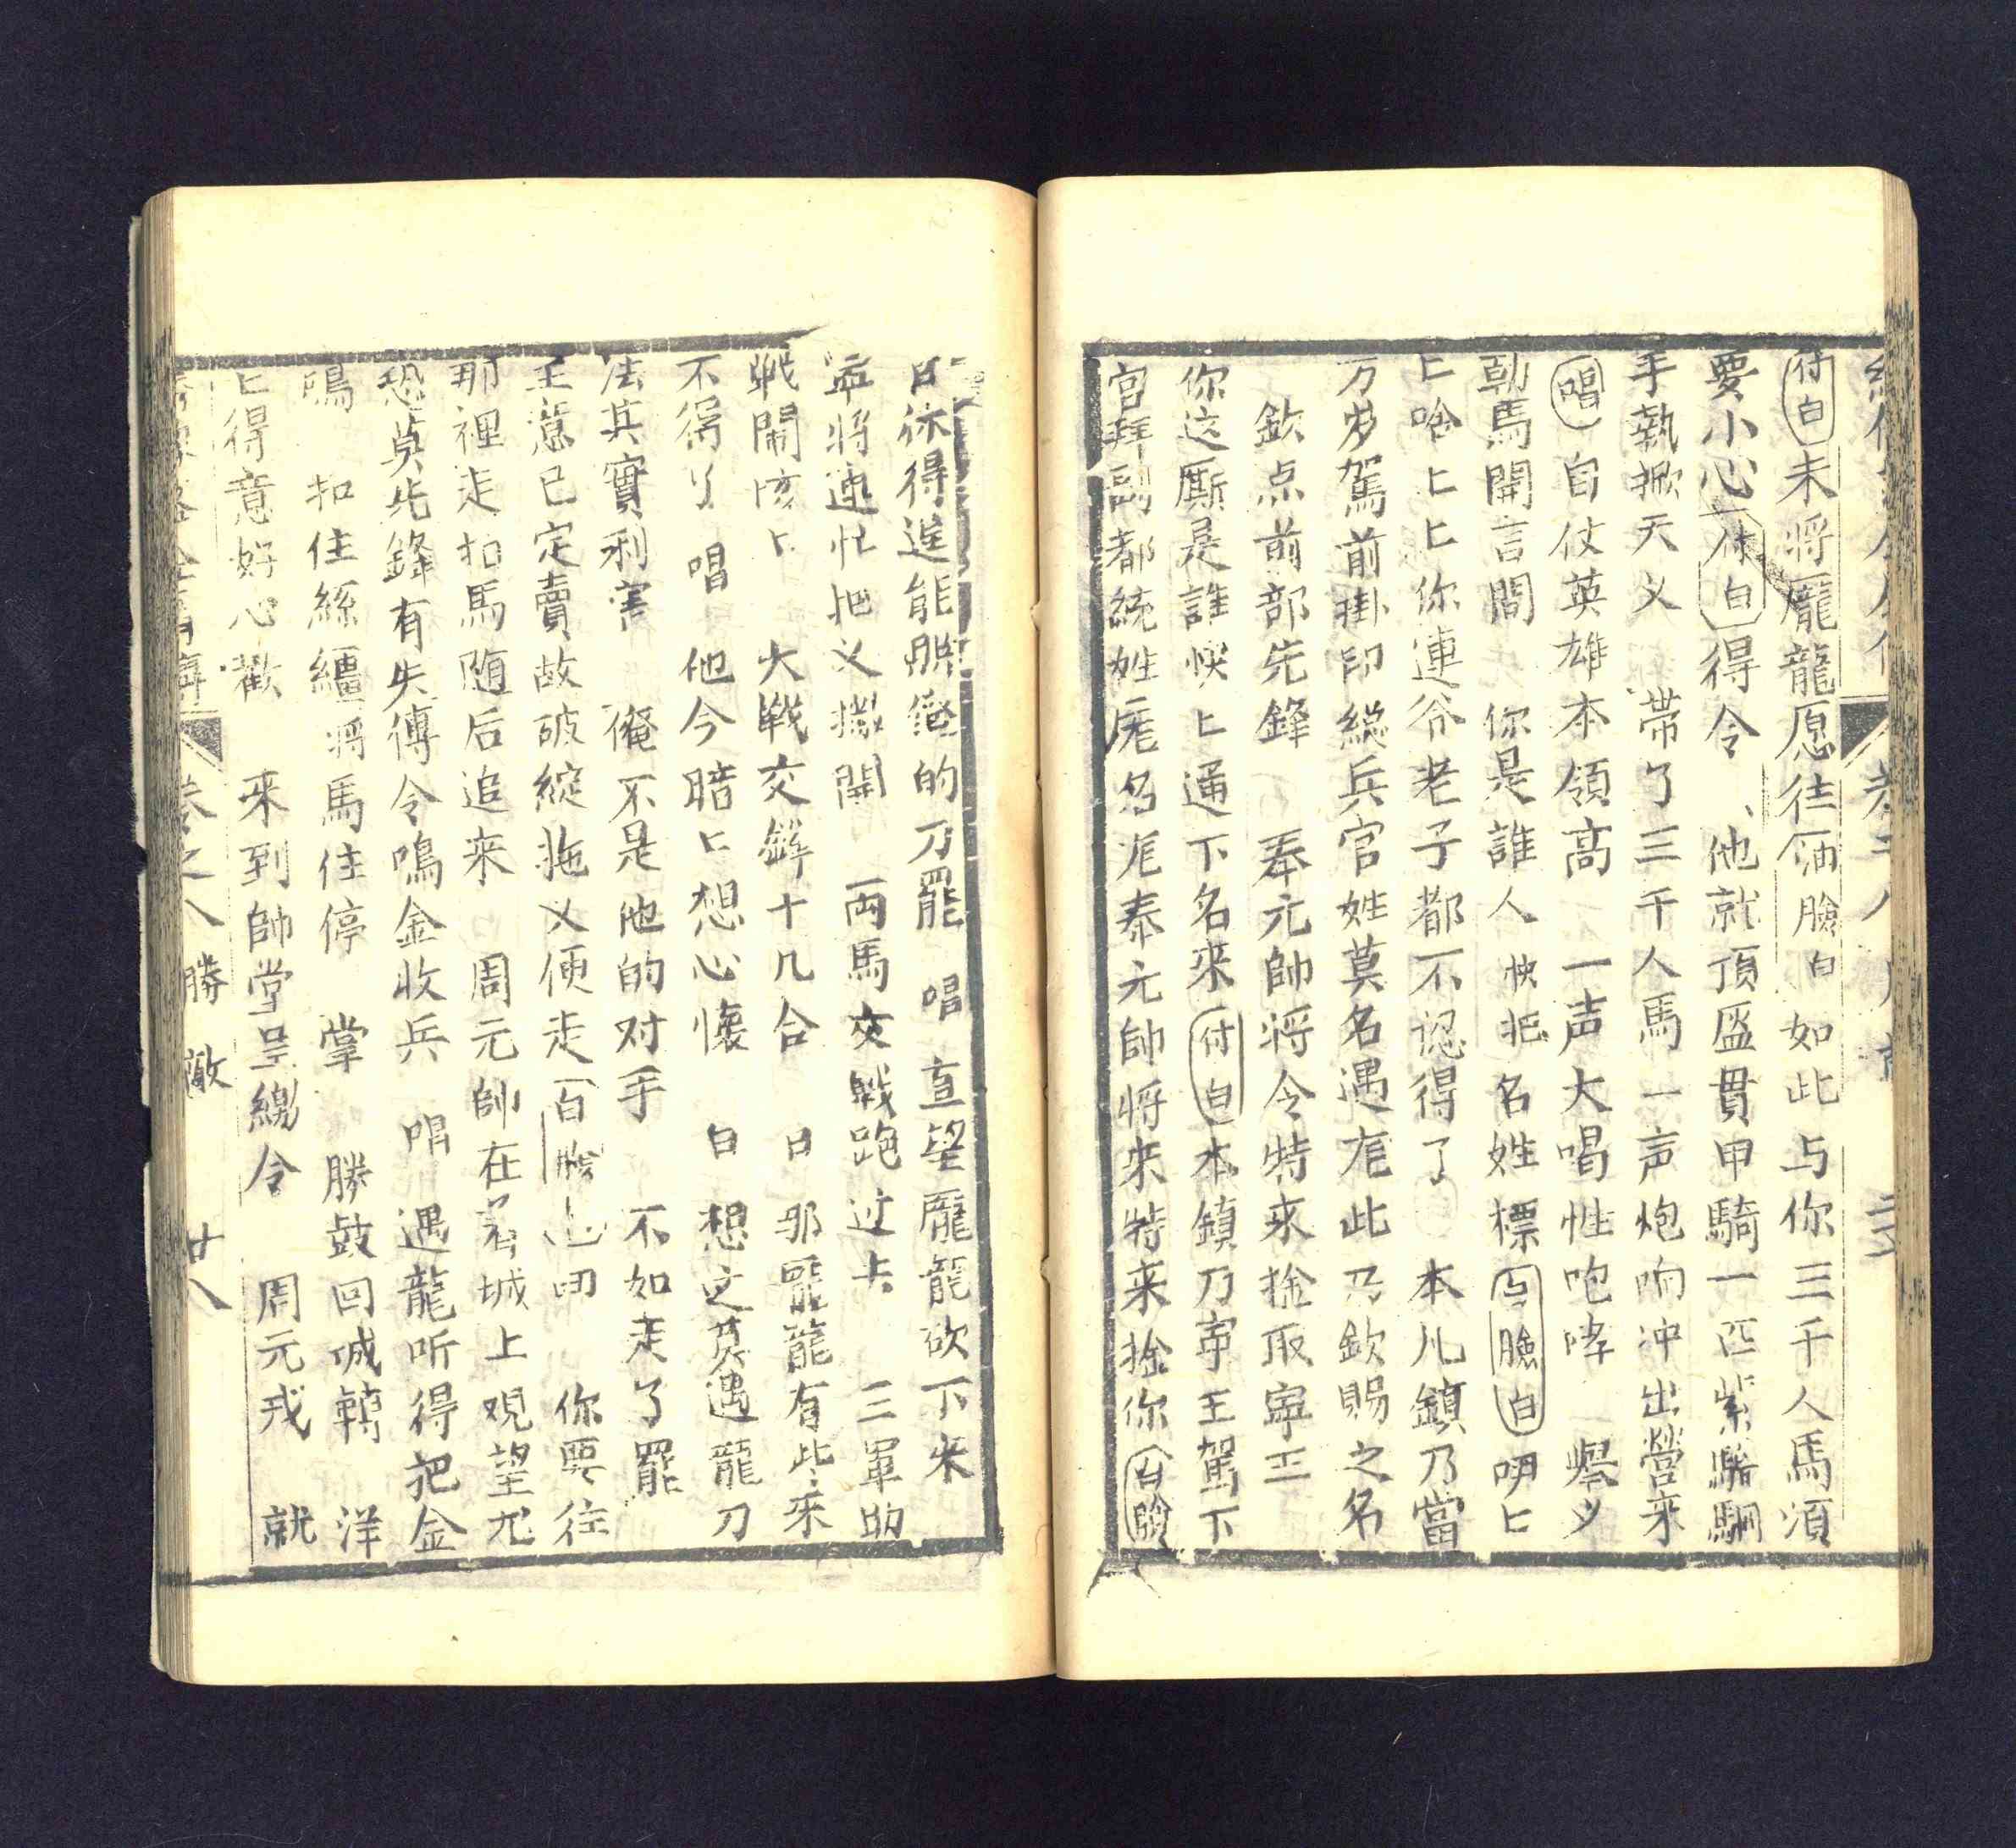 付白末将龐龍愿往油臉白如此与你三千人馬須
要小心付白得令 他就頂盔貫甲騎一匹紫騮駒
手執掀天义 帶了三千人馬一声炮响冲出營来
唱自仗英雄本領高 一声大喝性咆哮 舉夕
勒馬開言問 你是誰人快把名姓標 臉白 呀匕
匕啥匕匕你連爷老子都不認得了 本儿鎮乃當
万岁駕前掛印総兵官姓莫名遇龍此乃欽賜之名
欽点前部先鋒 奉元帥将令特来捡取寧王
你这厮是誰快匕通下名来付白本鎮乃寧王駕下
官拜副都統姓龐名龍奉元帥将来特来捡你白臉
白休得逞能照俺的刀罷 唱 直望龐龍砍下来
将連忙把义擻開 两馬交戦跑过去 三軍助
戦鬧咳匕 大戰交鋒十几合 白那龐龍有些来
不得了 唱 他今暗匕想心懷 白想这莫遇龍刀
法其實利害 俺不是他的对手 不如走了罷
主意已定賣故破綻拖义便走白臉 你要往
那裡走拍馬随后追来 周元帥在城上观望尤
恐莫先鋒有失傳令鳴金收兵 唱 遇龍听得把金
鳴 扣住絲繮将馬住停 掌 勝鼓回城轉 洋
匕得意好心歡 来到帥堂呈繳令 周元戎 就
卷之八 勝敵 廿八